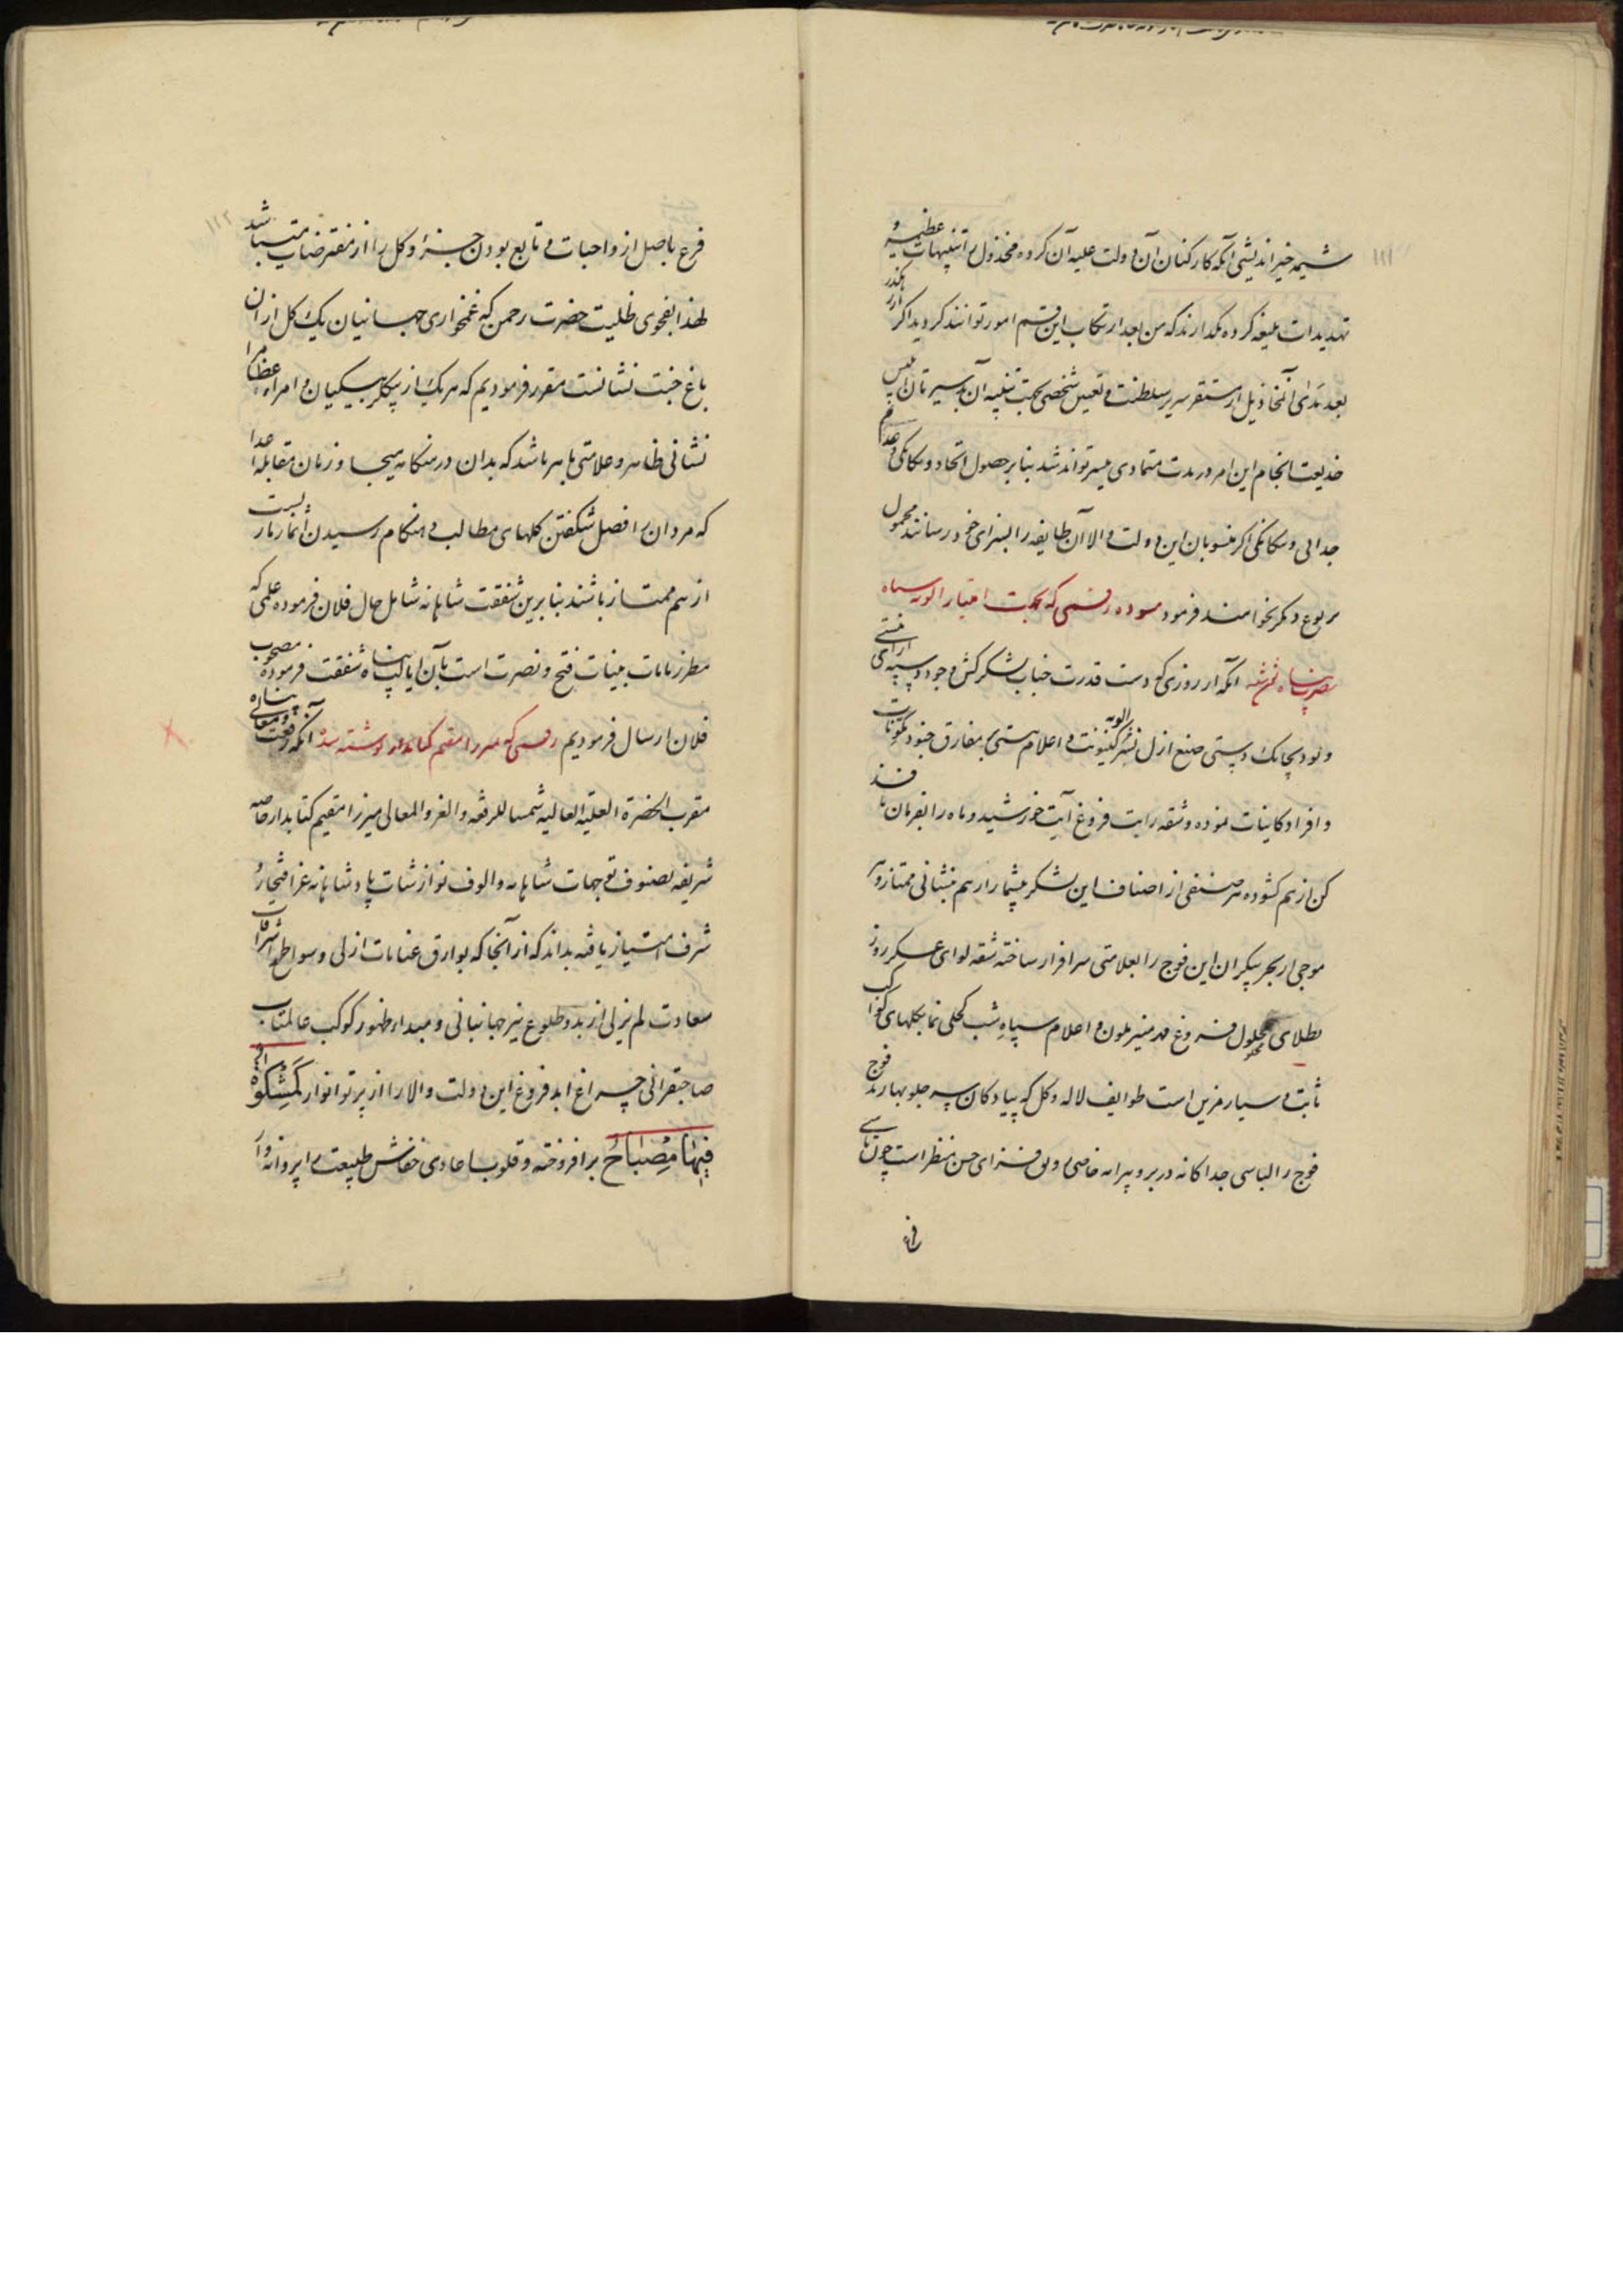 ۱۱۱
شیمه خیراندیشی آنکه کارکنان آن دولت علیه آن کروه مخذول را تنبیهات عظیمه و
تهدیدات بلیغه کرده نکذارند که من بعد ارتکاب این قسم امور توانند کردید اکر
بعد مدای آنمخاذیل از مستقر سریر سلطنت و تعیین شخصی بجهت تنبیه آن
انجام این امر در مدت متمادی میسر تواند شد بنا بر حصول اتحاد و یکانکی و عدم
جدایی و بیکانکی اکر منسوبان این دولت والا آن طایفه را بسزای خود رسانند محمول
بر نوع دیکر نخواهند فرمود مسوده رقمی که بجهت امتیاز الویه سپاه
نصرت پناه انکه از روزی که دست قدرت جناب لشکرکش وجود و سپه آرای هستی
و بود بچابک دستی صنع ازل نشر الویه کینونت و اعلام هستی بمفارق جنود مکونات
و افراد کاینات نموده و شقه رایت فروغ آیت خورشید و ماه را بفرمان نافذ
کن از هم کشوده هر صنفی از اصناف این لشکر بیشمار را از هم بنشانی ممتاز و هر
موجی از بحر بیکران این فوج را بعلامتی سرافراز ساخته شقه لوای عسکر روز
بطلای محلول فروغ مهر منیر ملون و اعلام سپاه شب کحلی نما بکلهای کواکب
ثابت و سیار مزین است طوایف لاله و کل که پیادکان سپه جلو بهارند فوج
فوج را لباسی جداکانه در بر و پیرایه خاصی رونق فزای حسن منظر است چون تاسی
۱۱۲
فرع باصل از واجبات و تابع بودن جزء و کل را از مفترضات میباشد
لهذا بفحوی ظلیت حضرت رحمن که غمخواری جهانیان یک کل ازان
باغ جنت نشانست مقرر فرمودیم که هر یک از بیکلربیکیان و امراء عظام را
نشانی ظاهر و علامتی باهر باشد که بدان در هنکامه هیجا و زمان مقابله اعدا
که مردان را فصل شکفتن کلهای مطالب و هنکام رسیدن اثمار مارست
از هم ممتاز باشند بنا برین شفقت شاهانه شامل حال فلان فرموده علمی که
مطرز بآیات بینات فتح و نصرت است بآن ایالت پناه شفقت فرموده مصحوب
فلان ارسال فرمودیم رقمی که میرزا مقیم کتابدار نوشته شده آنکه رفعت و معالی پناه
مقرب الحضرة العلیة العالیه شمسا للرفعه و العز و المعالی میرزا مقیم کتابدار خاصه
شریفه بصنوف توجهات شاهانه و الوف نوازشات پادشاهانه عز افتخار و
شرف امتیاز یافته بداند که از آنجا که بوارق عنایات ازلی و سواطع اشراقات
سعادت لم یزلی از بدو طلوع نیر جهانبانی و مبداء ظهور کوکب عالمتاب
صاحبقرانی چراغ ابد فروغ این دولت والا را از پرتو انوار کمشکوة
فیها مصباح برافروخته و قلوب اعادی خفاش طبیعت را پروانه